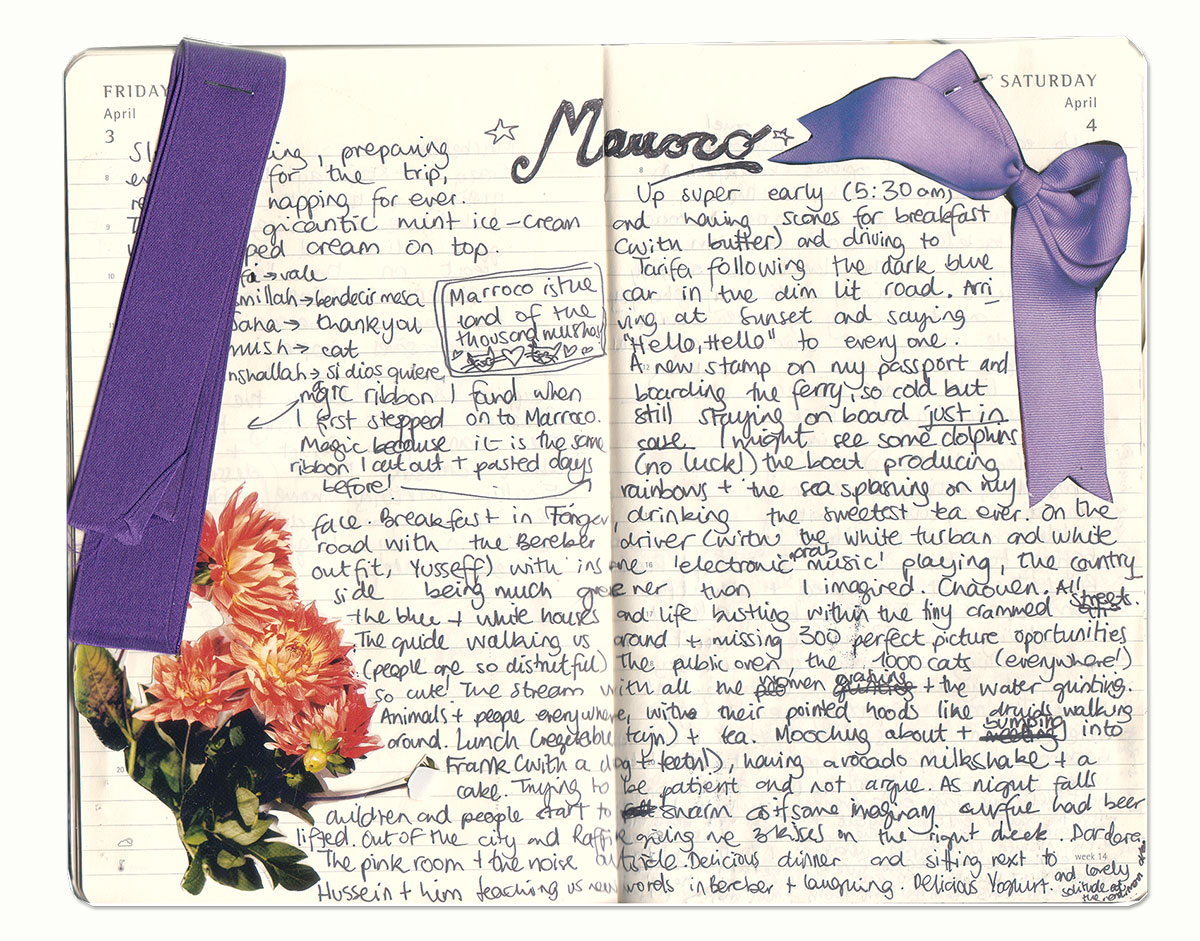 FRIDAY
April
3
ing, preparing
for the trip,
napping for ever.
gigantic mint ice-cream
ped cream on top.
→ vale
millah → bendecir mesa
Saha → thank you
mush → cat
nshallah → si dios quiere
Marroco is the
land of the
thousand mushas
magic ribbon I found when
I first stepped on to Marroco.
Magic because it is the same
ribbon I cut out + pasted days
before!
Marroco
SATURDAY
April
4
8
Up super early (5:30 am)
and having scones for breakfast
(with butter) and driving to
Tarifa following the dark blue
car in the dim lit road. Arri
ving at sunset and saying
"Hello, Hello" to everyone.
A new stamp on my passport and
boarding the ferry, so cold but
still staying on board just in
case I might see some dolphins
(no luck!) the boat producing
rainbows + the sea splashing on my
face. Breakfast in Tanger, drinking the sweetest tea ever. On the
road with the Bereber driver (with the white turban and white
outfit, Yusseff) with insane 'electronic arab music' playing, the country
side being much greener than I imagined. Chaouen. All
the blue + white houses and life bustling within the tiny crammed streets.
The guide walking us around + missing 300 perfect picture oportunities
(people are so distrutful) The public oven, the 1000 cats (everywhere!)
so cute! The stream with all the women + the water glinting.
Animals + people everywhere, with their pointed hoods like druids walking
around. Lunch (vegetable tajn) + tea. Mooching about + bumping into
Frank (with a dog + teeth!), having avocado milkshake + a
cake. Trying to be patient and not argue. As night falls
children and people start to swarm as if some imaginary curfue had beer
lifted. Out of the city and Raffik giving me 3 kisses on the right cheek. Dardara.
The pink room + the noise outside. Delicious dinner and sitting next to
Hussein + him teaching us new words in Bereber + laughing. Delicious Yoghurt. and lovely
solitude of
week 14